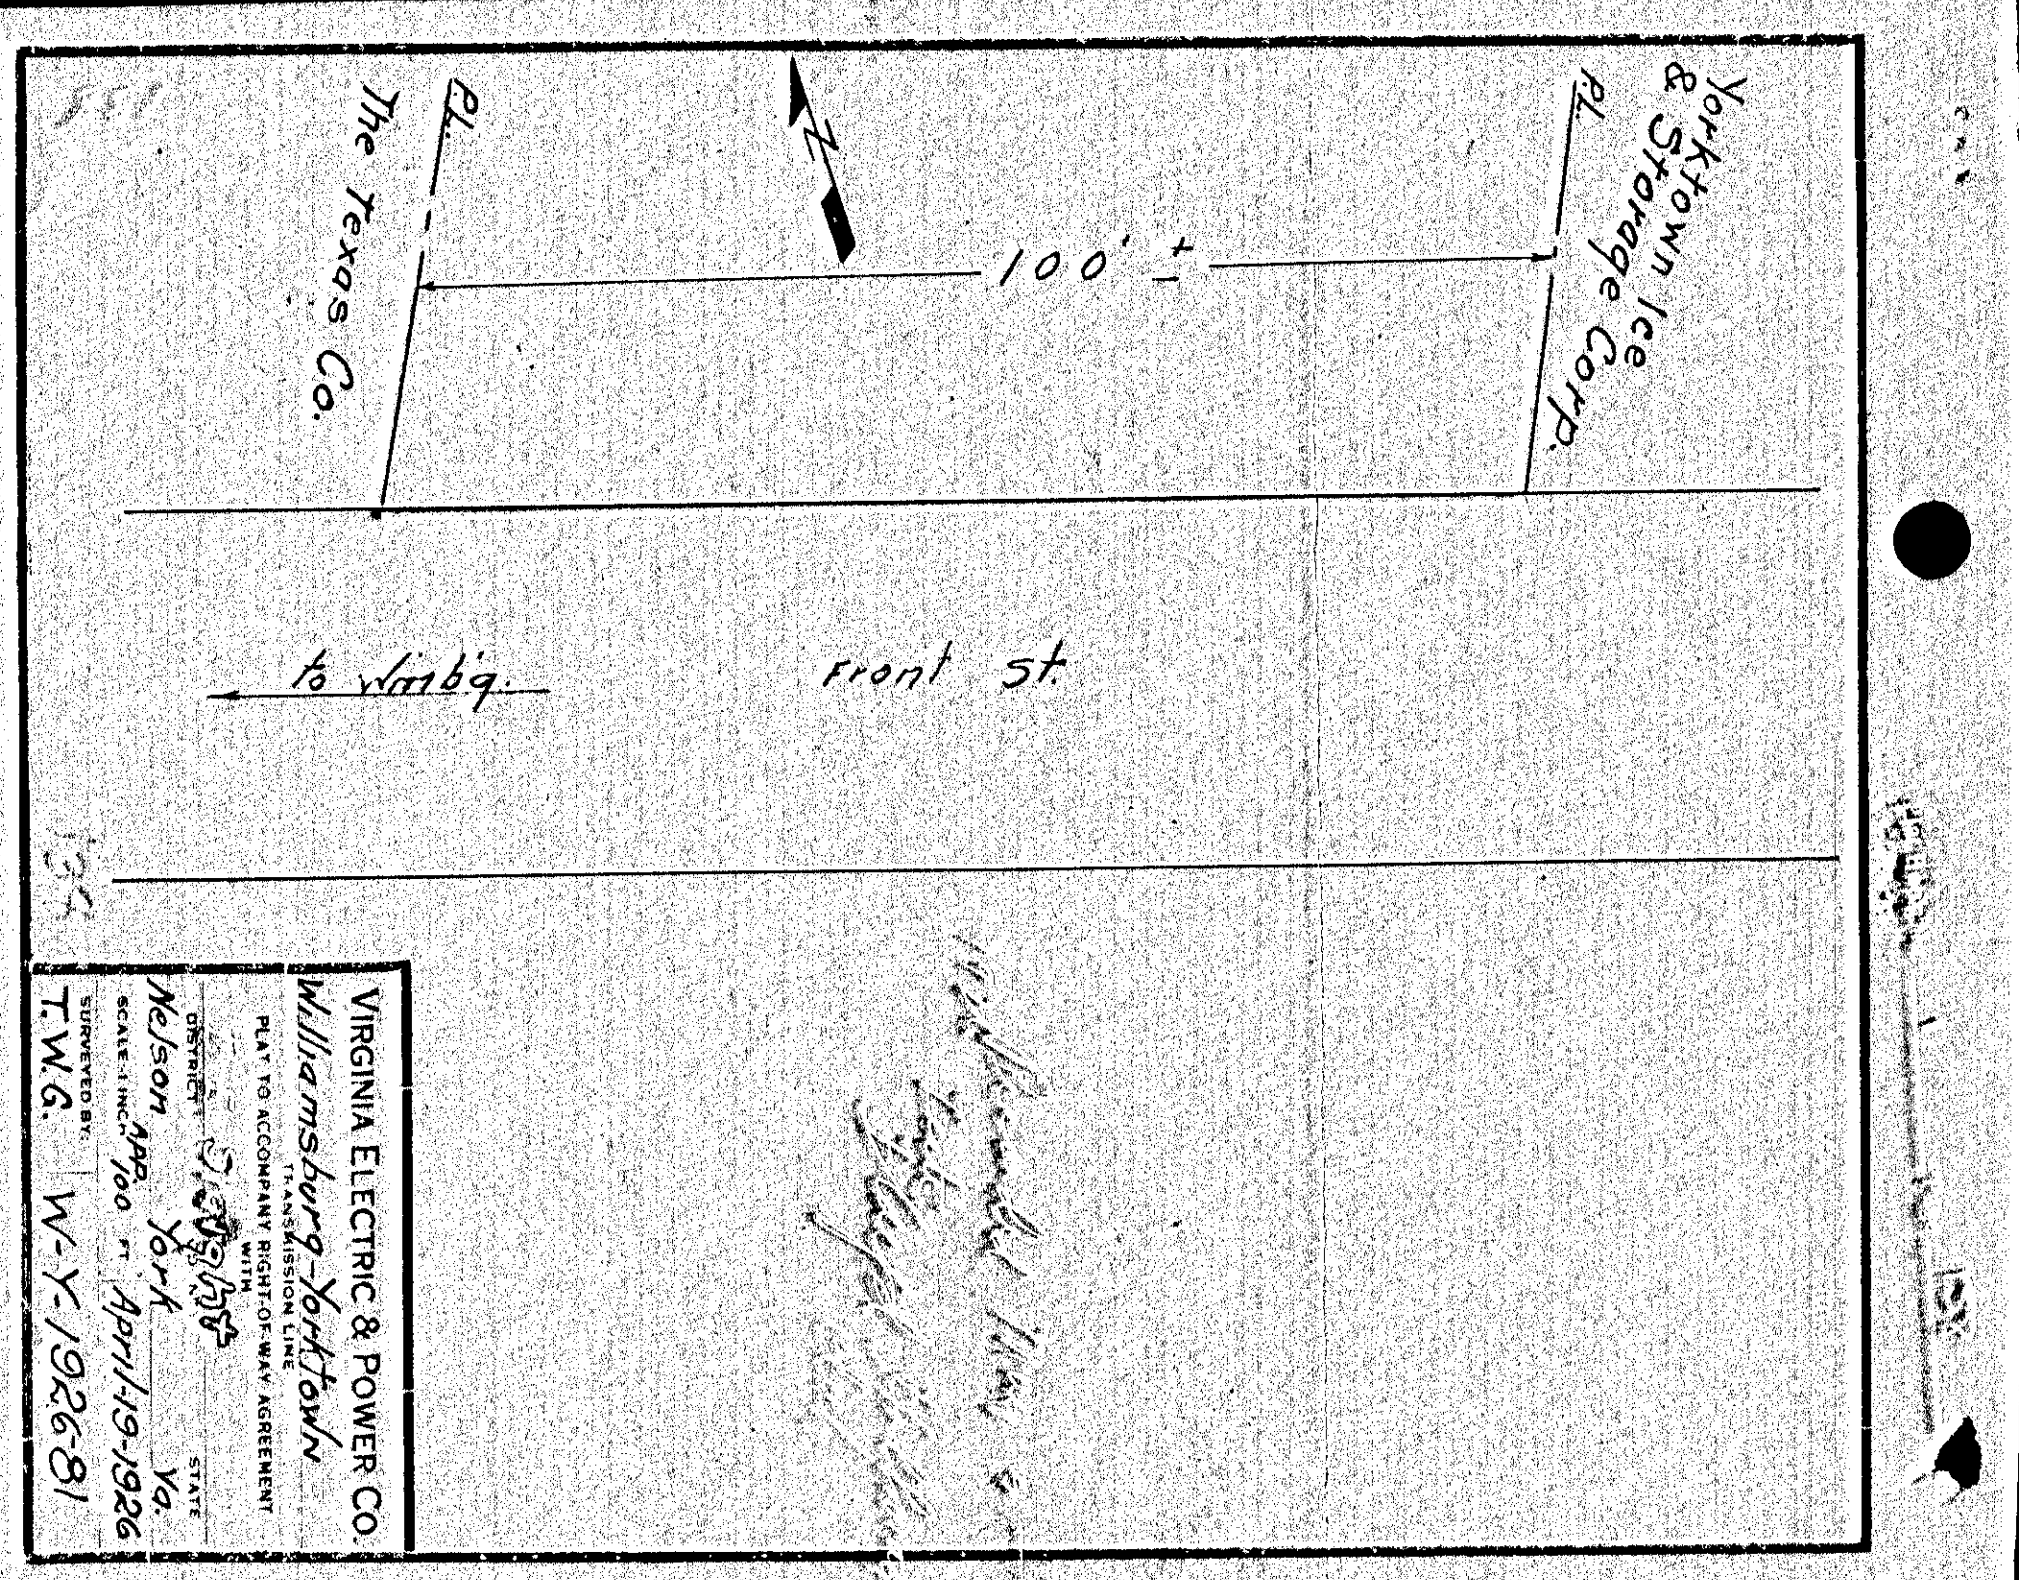 Yorktown Ice
& Storage Corp.
P.L.
100' ±
P.L.
The Texas Co.
Front St.
to Wmb'g.
VIRGINIA ELECTRIC & POWER CO.
Williamsburg-Yorktown
TRANSMISSION LINE
PLAT TO ACCOMPANY RIGHT-OF-WAY AGREEMENT
WITH
DISTRICT STATE
Nelson York Va.
SCALE-1 INCH APP. 100 FT. April-19-1926
SURVEYED BY:
T.W.G. W-Y-1926-81